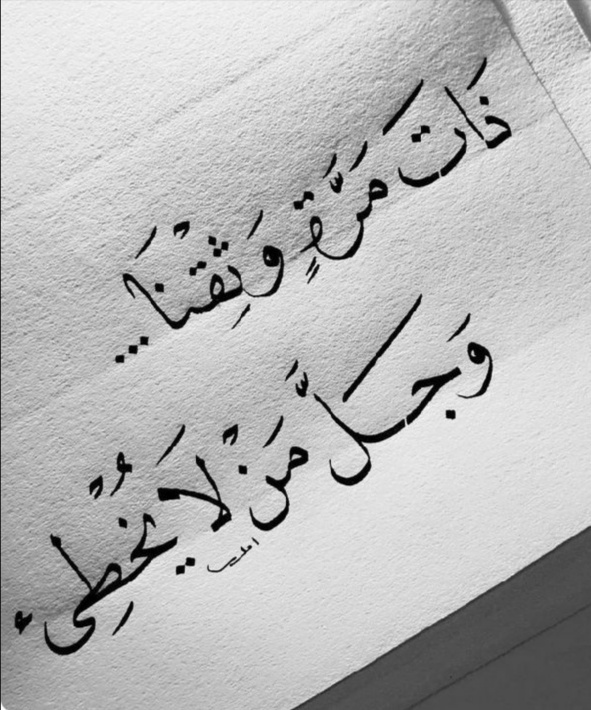 ذَاتَ مَرَّةٍ وَثِقْنَا...
وَجَلَّ مَنْ لَا يُخْطِئ